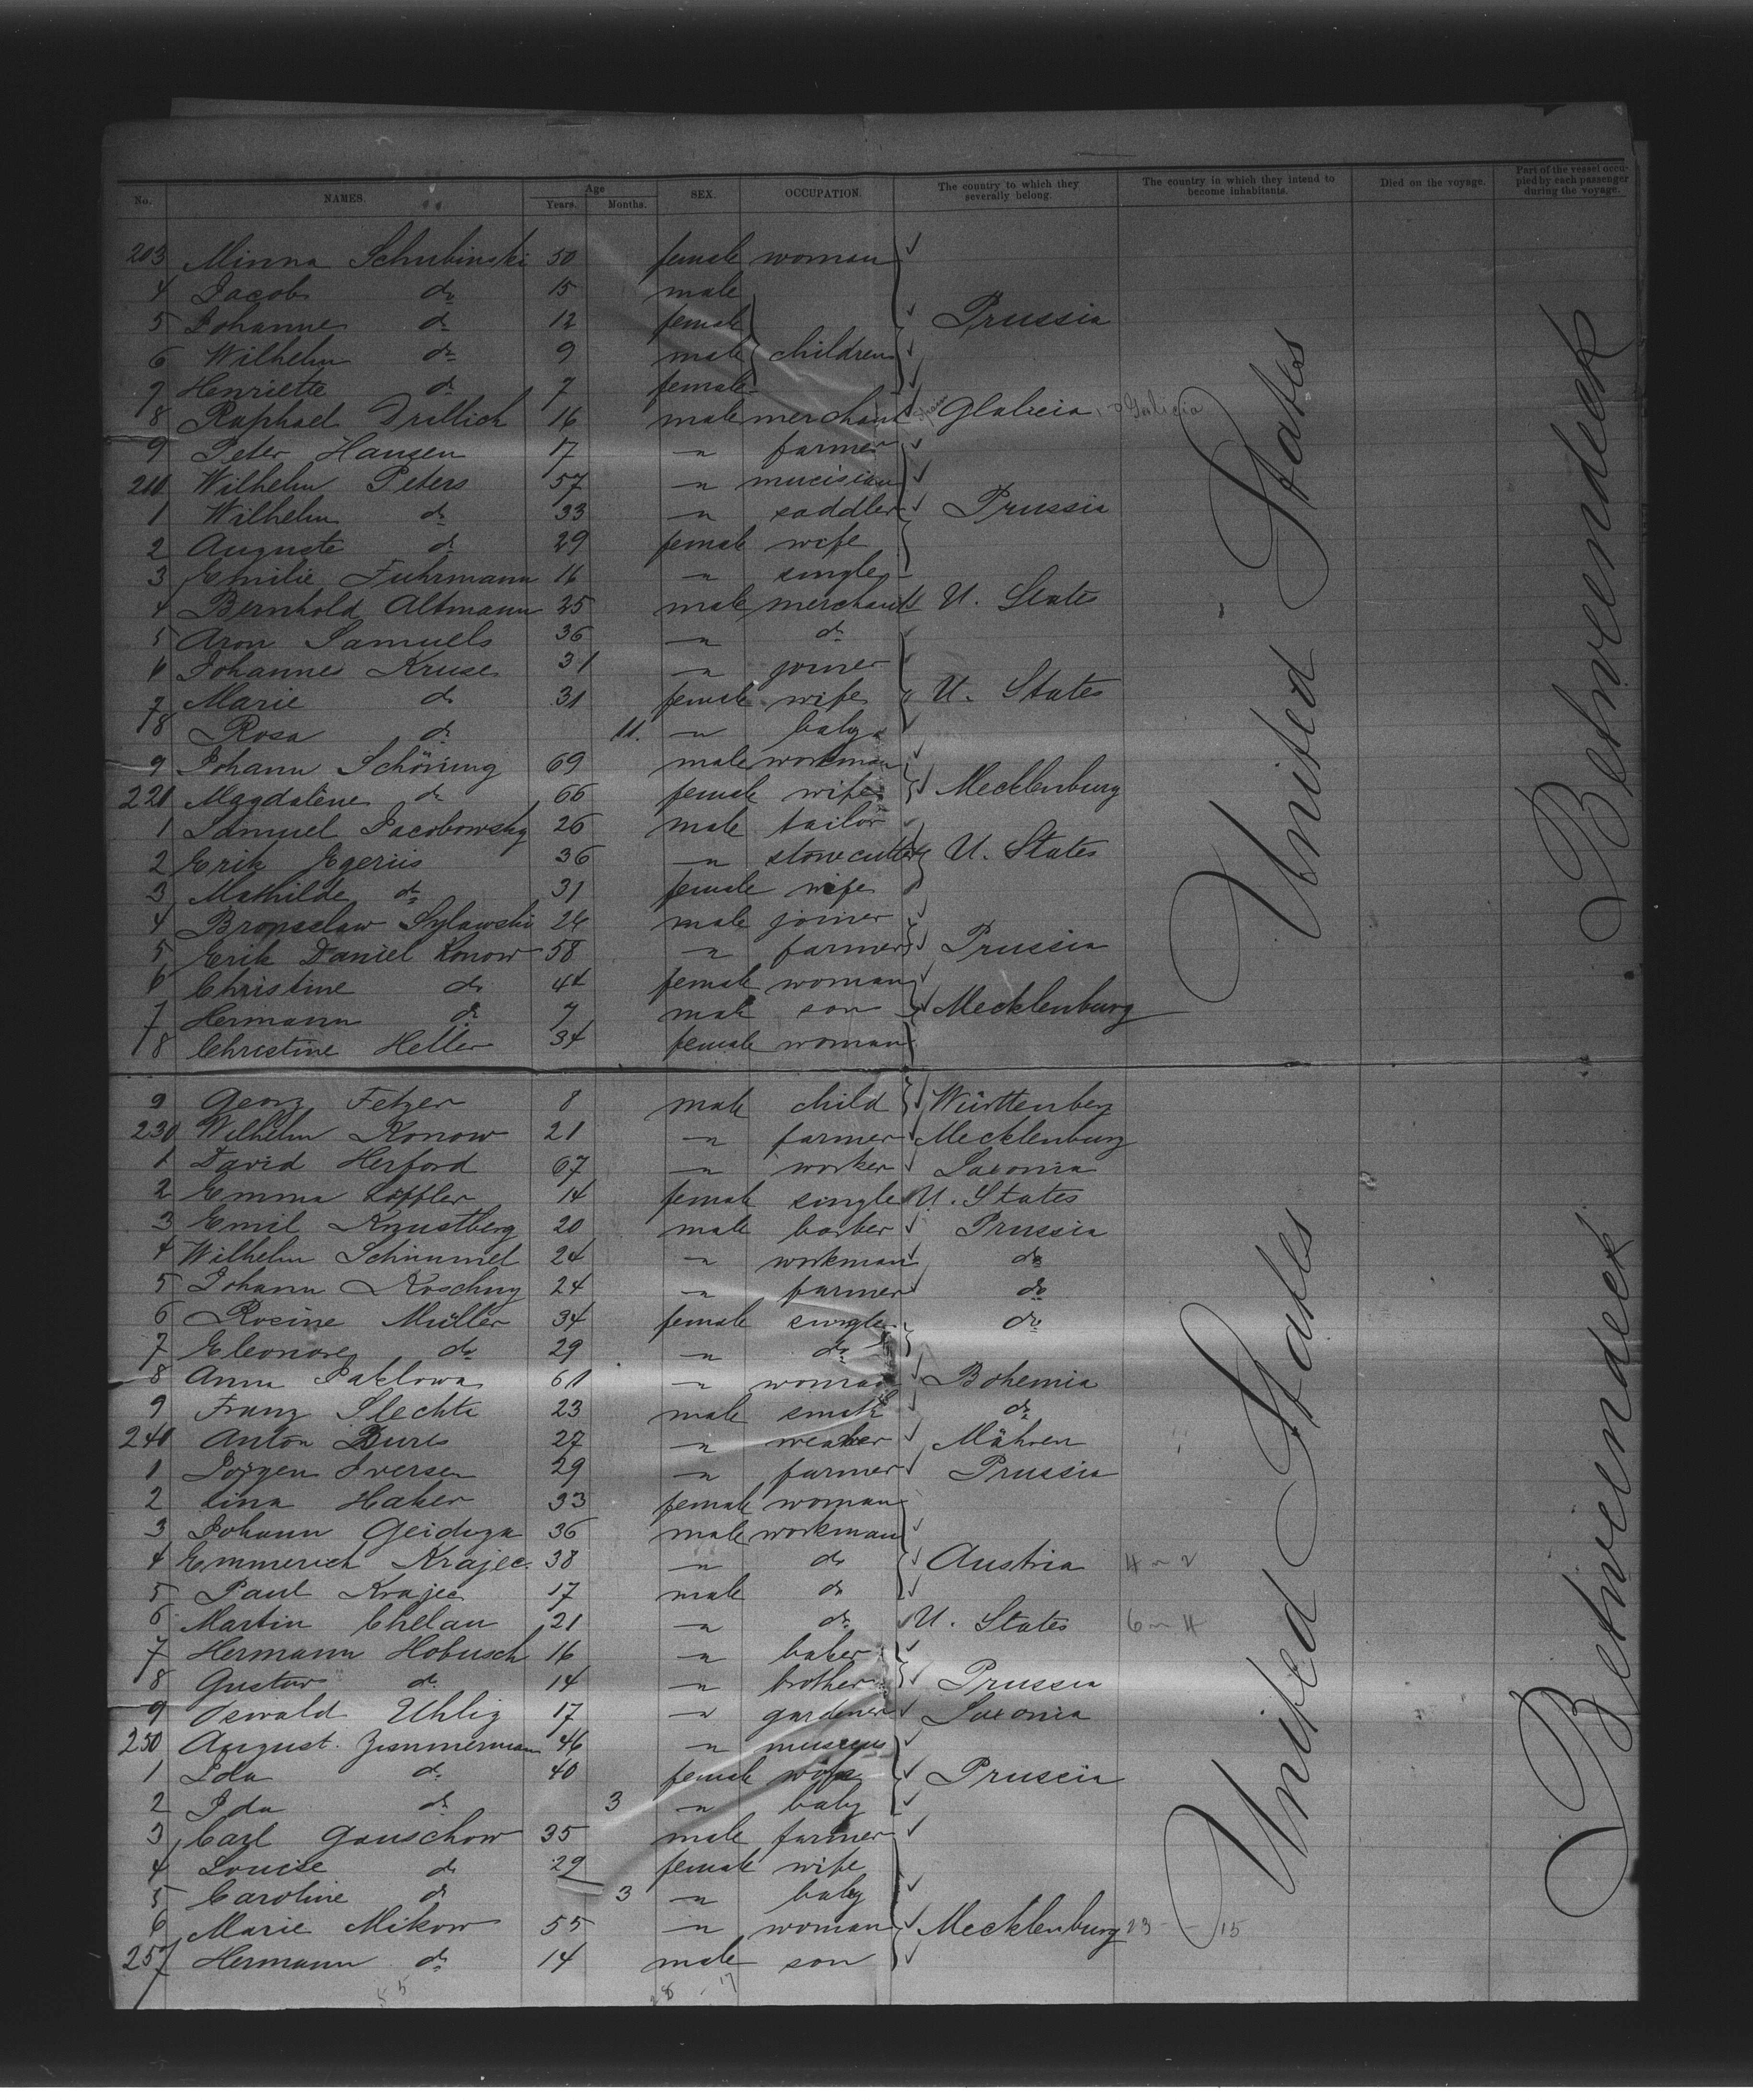 No. NAMES. Age Years. Months. SEX. OCCUPATION. The country to which they severally belong. The country in which they intend to become inhabitants. Died on the voyage. Part of the vessel occupied by each passenger during the voyage.
203 Minna Schubinski 50 female woman
4 Jacob do 15 male
5 Johanne do 12 female Prussia
6 Wilhelm do 9 male children
7 Henriette do 7 female
8 Raphael Drillich 16 male merchant Glalicia Galicia
9 Peter Hansen 17 " farmer
210 Wilhelm Peters 57 " mucisian
1 Wilhelm do 33 " saddler Prussia
2 Auguste do 29 female wife
3 Emilie Fuhrmann 16 " single
4 Bernhold Altmann 25 male merchant U. States
5 Aron Samuels 36 " do
6 Johannes Kruse 31 " joiner
7 Marie do 31 female wife U. States
18 Rosa do 11. " baby
9 Johann Schöning 69 male workman
220 Magdalene do 66 female wife Mecklenburg
1 Samuel Jacobowsky 26 male tailor
2 Erik Egeriis 36 " stonecutter U. States
3 Mathilde do 31 female wife
4 Bronselaw Sylawski 26 male joiner
5 Erik Daniel Konow 58 " farmer Prussia
6 Christine do 44 female woman
7 Hermann do 7 male son Mecklenburg
18 Christine Heller 34 female woman
9 Georg Fetzer 8 male child Württenberg
230 Wilhelm Konow 21 " farmer Mecklenburg
1 David Herford 67 " worker Saxonia
2 Emma Löffler 14 female single U. States
3 Emil Knustberg 20 male barber Prussia
4 Wilhelm Schimmel 24 " workman do
5 Johann Koschny 24 " farmer do
6 Rosine Müller 34 female single do
7 Eleonore do 29 " do
8 Anna Paklowa 61 " woman Bohemia
9 Franz Slechta 23 male smith do
240 Anton Bures 27 " weaker Mähren
1 Jörgen Iversen 29 " farmer Prussia
2 Lina Haker 33 female woman
3 Johann Geidoza 36 male workman
4 Emmerich Krajec 38 " do Austria
5 Paul Krajec 17 male do
6 Martin Chelau 21 " do U. States
7 Hermann Hobusch 16 " baker
8 Gustav do 14 " brother Prussia
9 Oswald Uhlig 17 " gardener Saxonia
250 August Zimmermann 46 "
1 Ida do 40 female wife Prussia
2 Ida do 3 " baby
3 Carl Gauschow 35 male farmer
4 Louise do 29 female wife
5 Caroline do 3 " baby
6 Marie Mikow 55 " woman Mecklenburg 23 - 15
257 Hermann do 14 male son
United States
United States
Betweendeck
Betweendeck